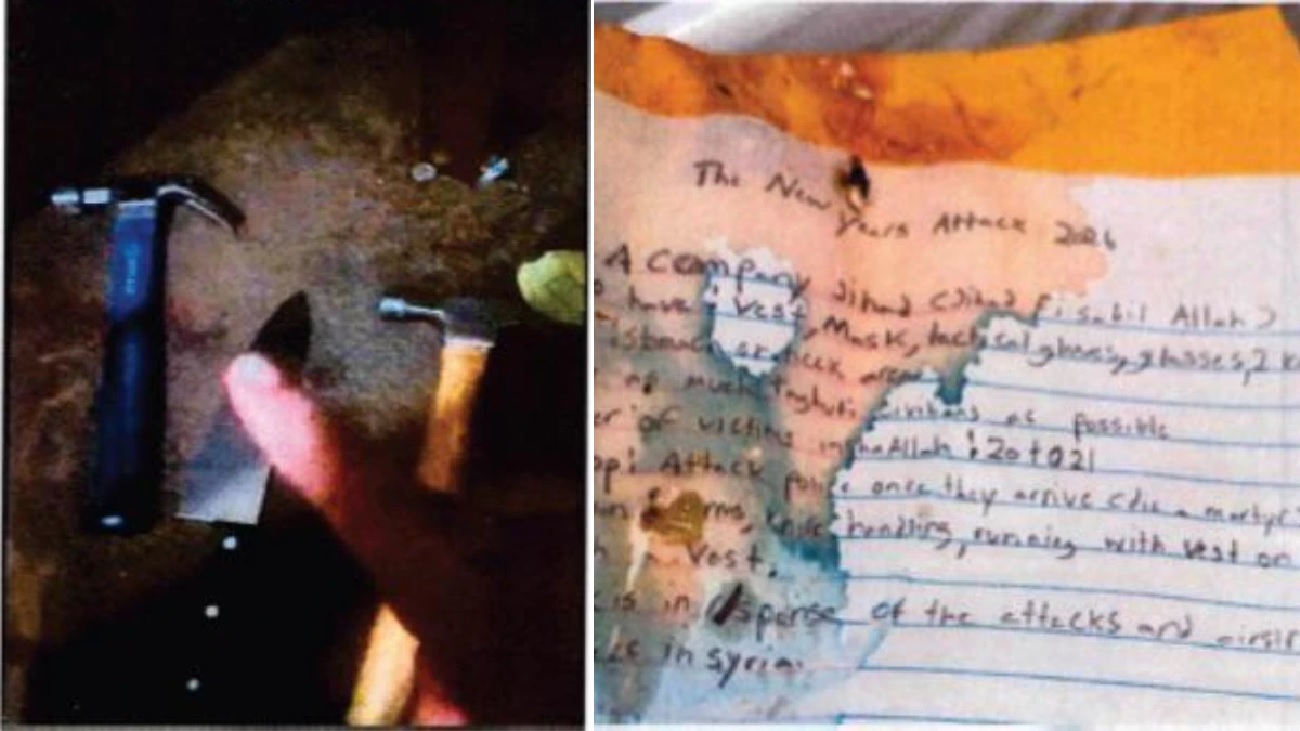 The New Years Attack 2026
A company Jihad (Jihad fi sabil Allah)
have : vest, Mask, tactical gloves, glasses, 2 k
or neck area
much civilians as possible
of victims inshaAllah : 20 to 21
Attack police once they arrive (die a martyr)
arms, knife handling, running with vest on
vest.
is in response of the attacks and airstr
in syria.